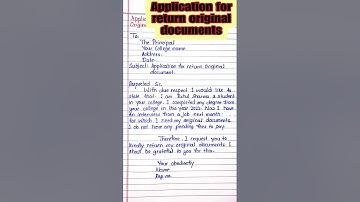 Application for
return original
documents
To,
The Principal
Your College name
Address.
Date-
Subject: Application for return Original
document.
Respected Sir,
With due respect I would like to
state that I am Rahul Sharma a student
in your college. I completed my degree from
your college in this year 2022. Now I have
An interview from a job next month
for which I need my original documents.
I do not have any pending fees to pay.
Therefore, I request you to
kindly return my original documents. I
shall be grateful to you for this.
Your obediently
Name